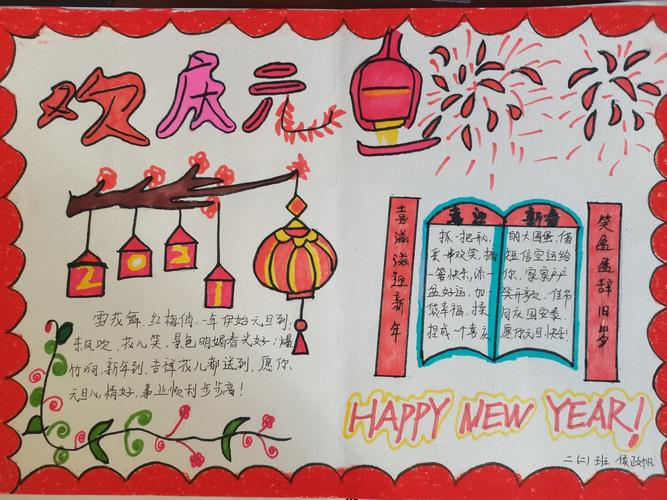 欢庆元旦
2021
雪花舞,红梅俏,一年伊始元旦到;
东风吹,花儿笑,景色明媚春光好;爆
竹响,新年到,吉祥花儿都送到,愿你
元旦心情好,事业顺利步步高!
喜滋滋迎新年
喜迎
抓一把开心,
采一串欢笑,
一答快乐,添一
盆好运,加一
袋幸福,揉
捏成一个喜庆
新春
的大圆蛋,借
短信空运给
你,家家户户
笑开颜,佳节
同庆国安泰,
愿你元旦快乐!
笑盈盈辞旧岁
HAPPY NEW YEAR!
二(二)班